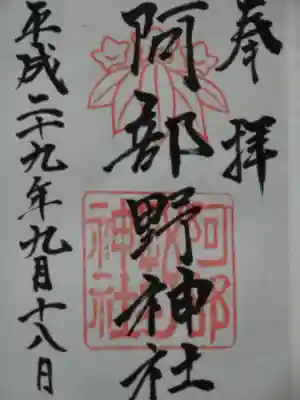 奉拝
阿部野神社
平成二十九年九月十八日
阿部野神社